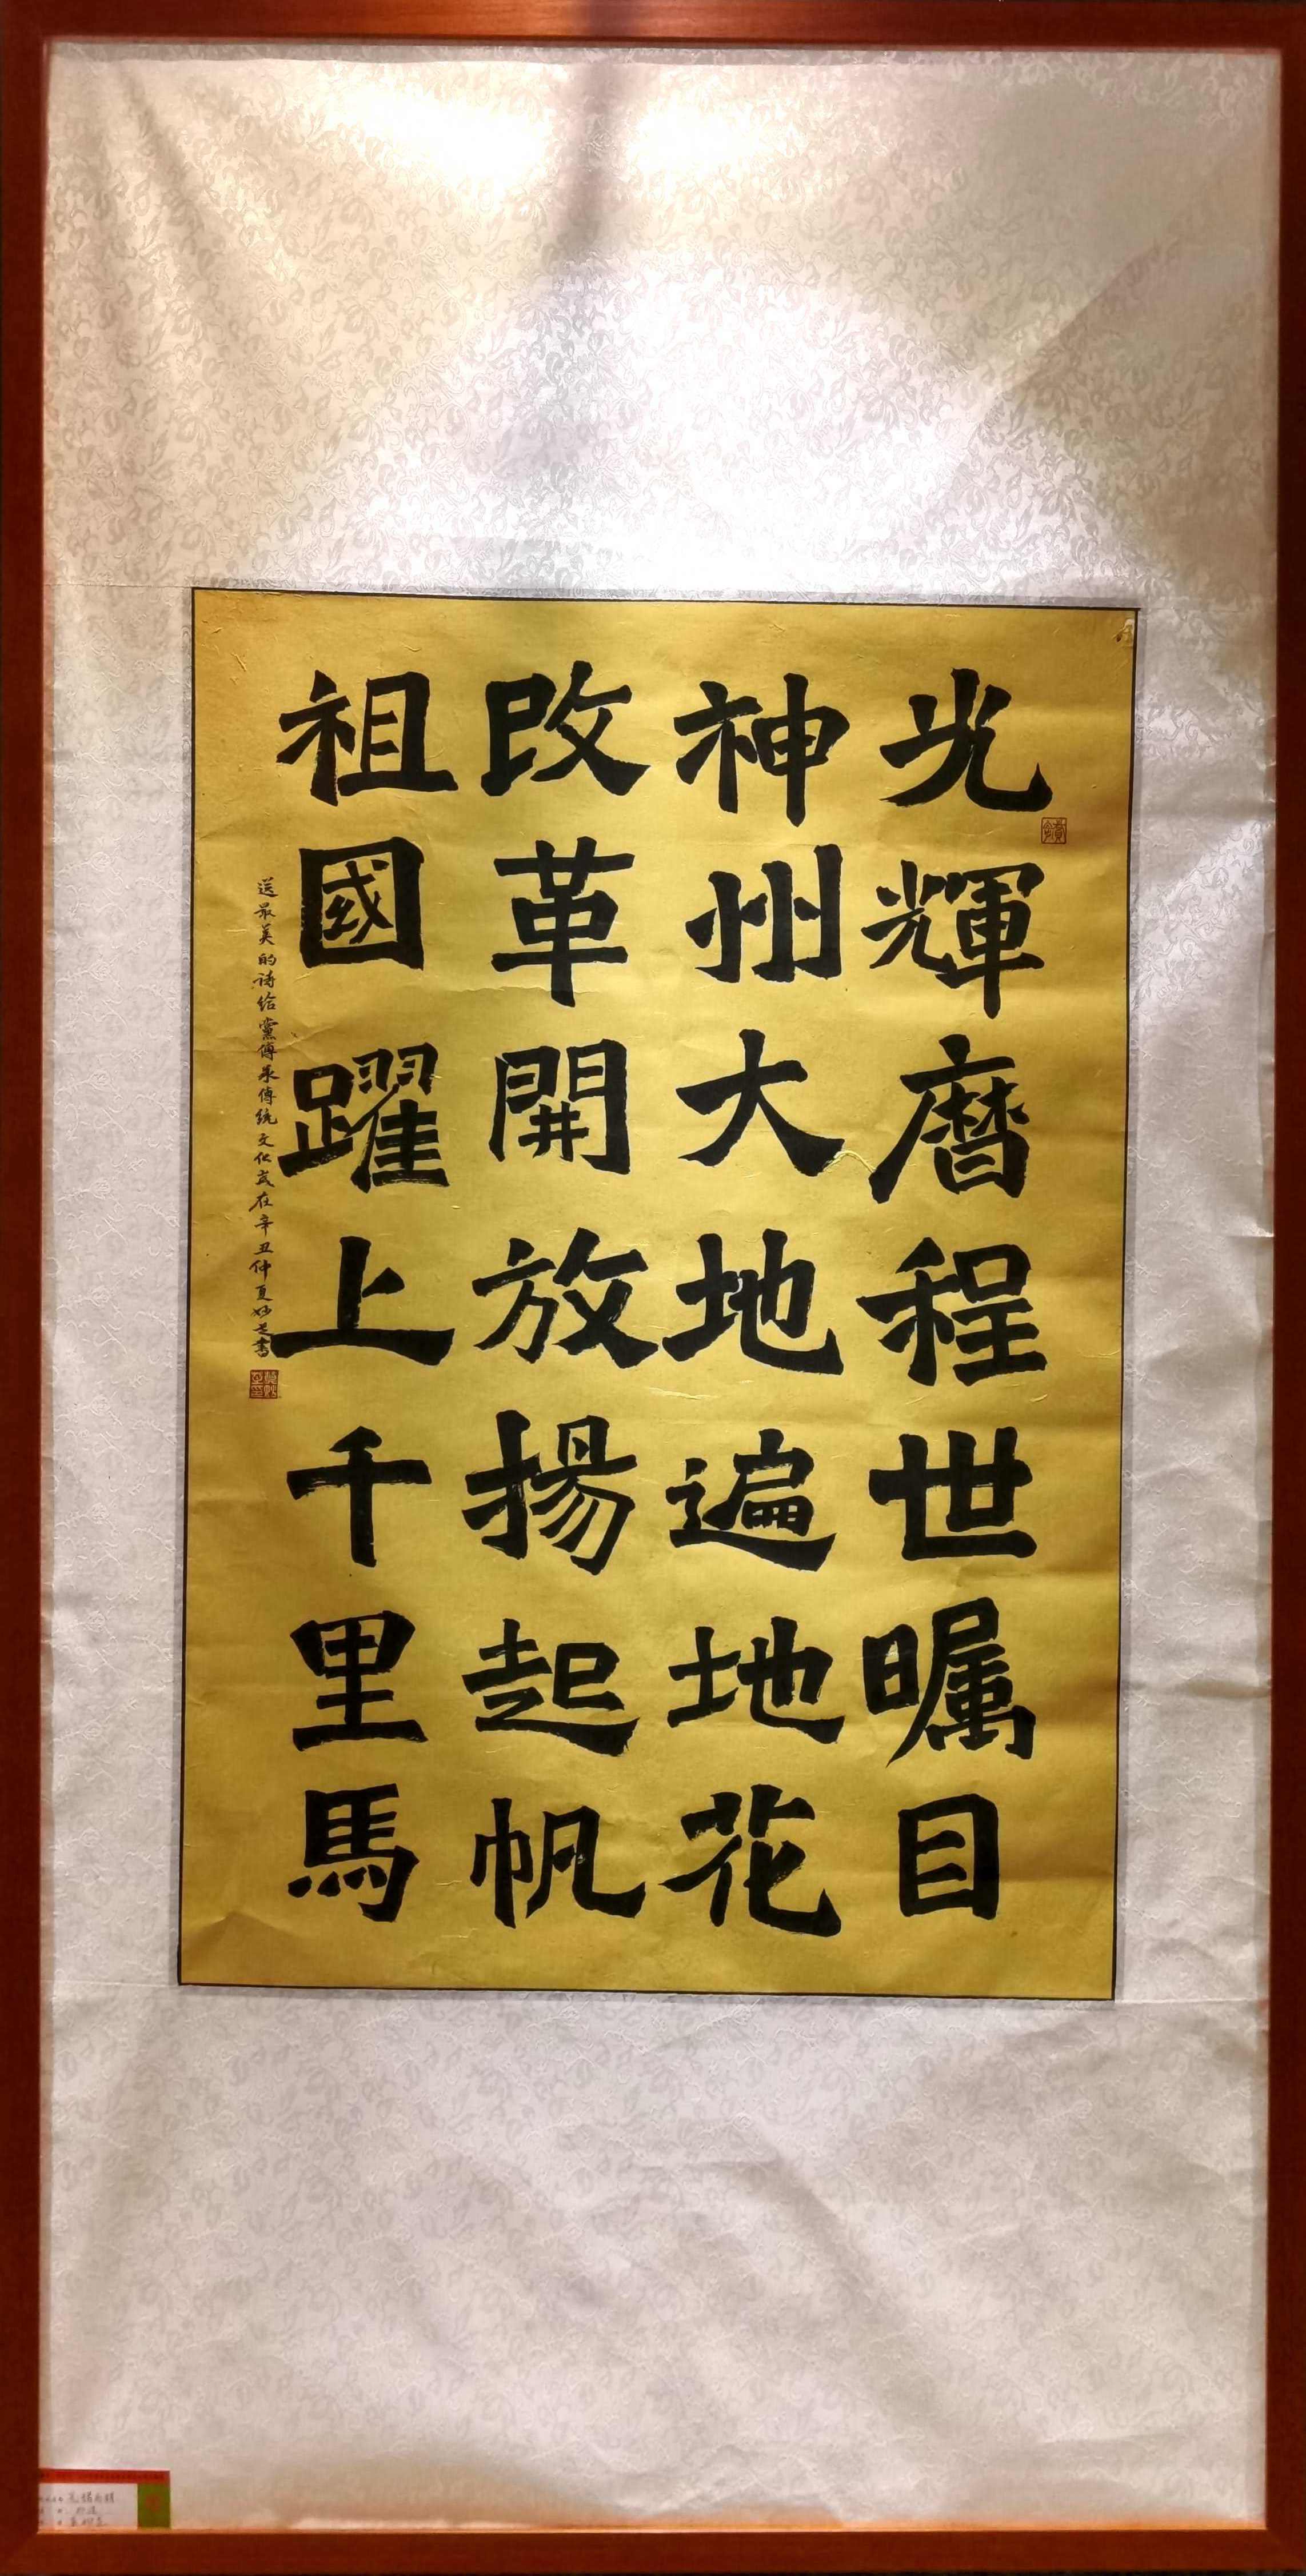 光輝曆程世矚目
神州大地遍地花
改革開放揚起帆
祖國躍上千里馬
送最美的诗给黨傅承傅統文化歲在辛丑仲夏妙芝書